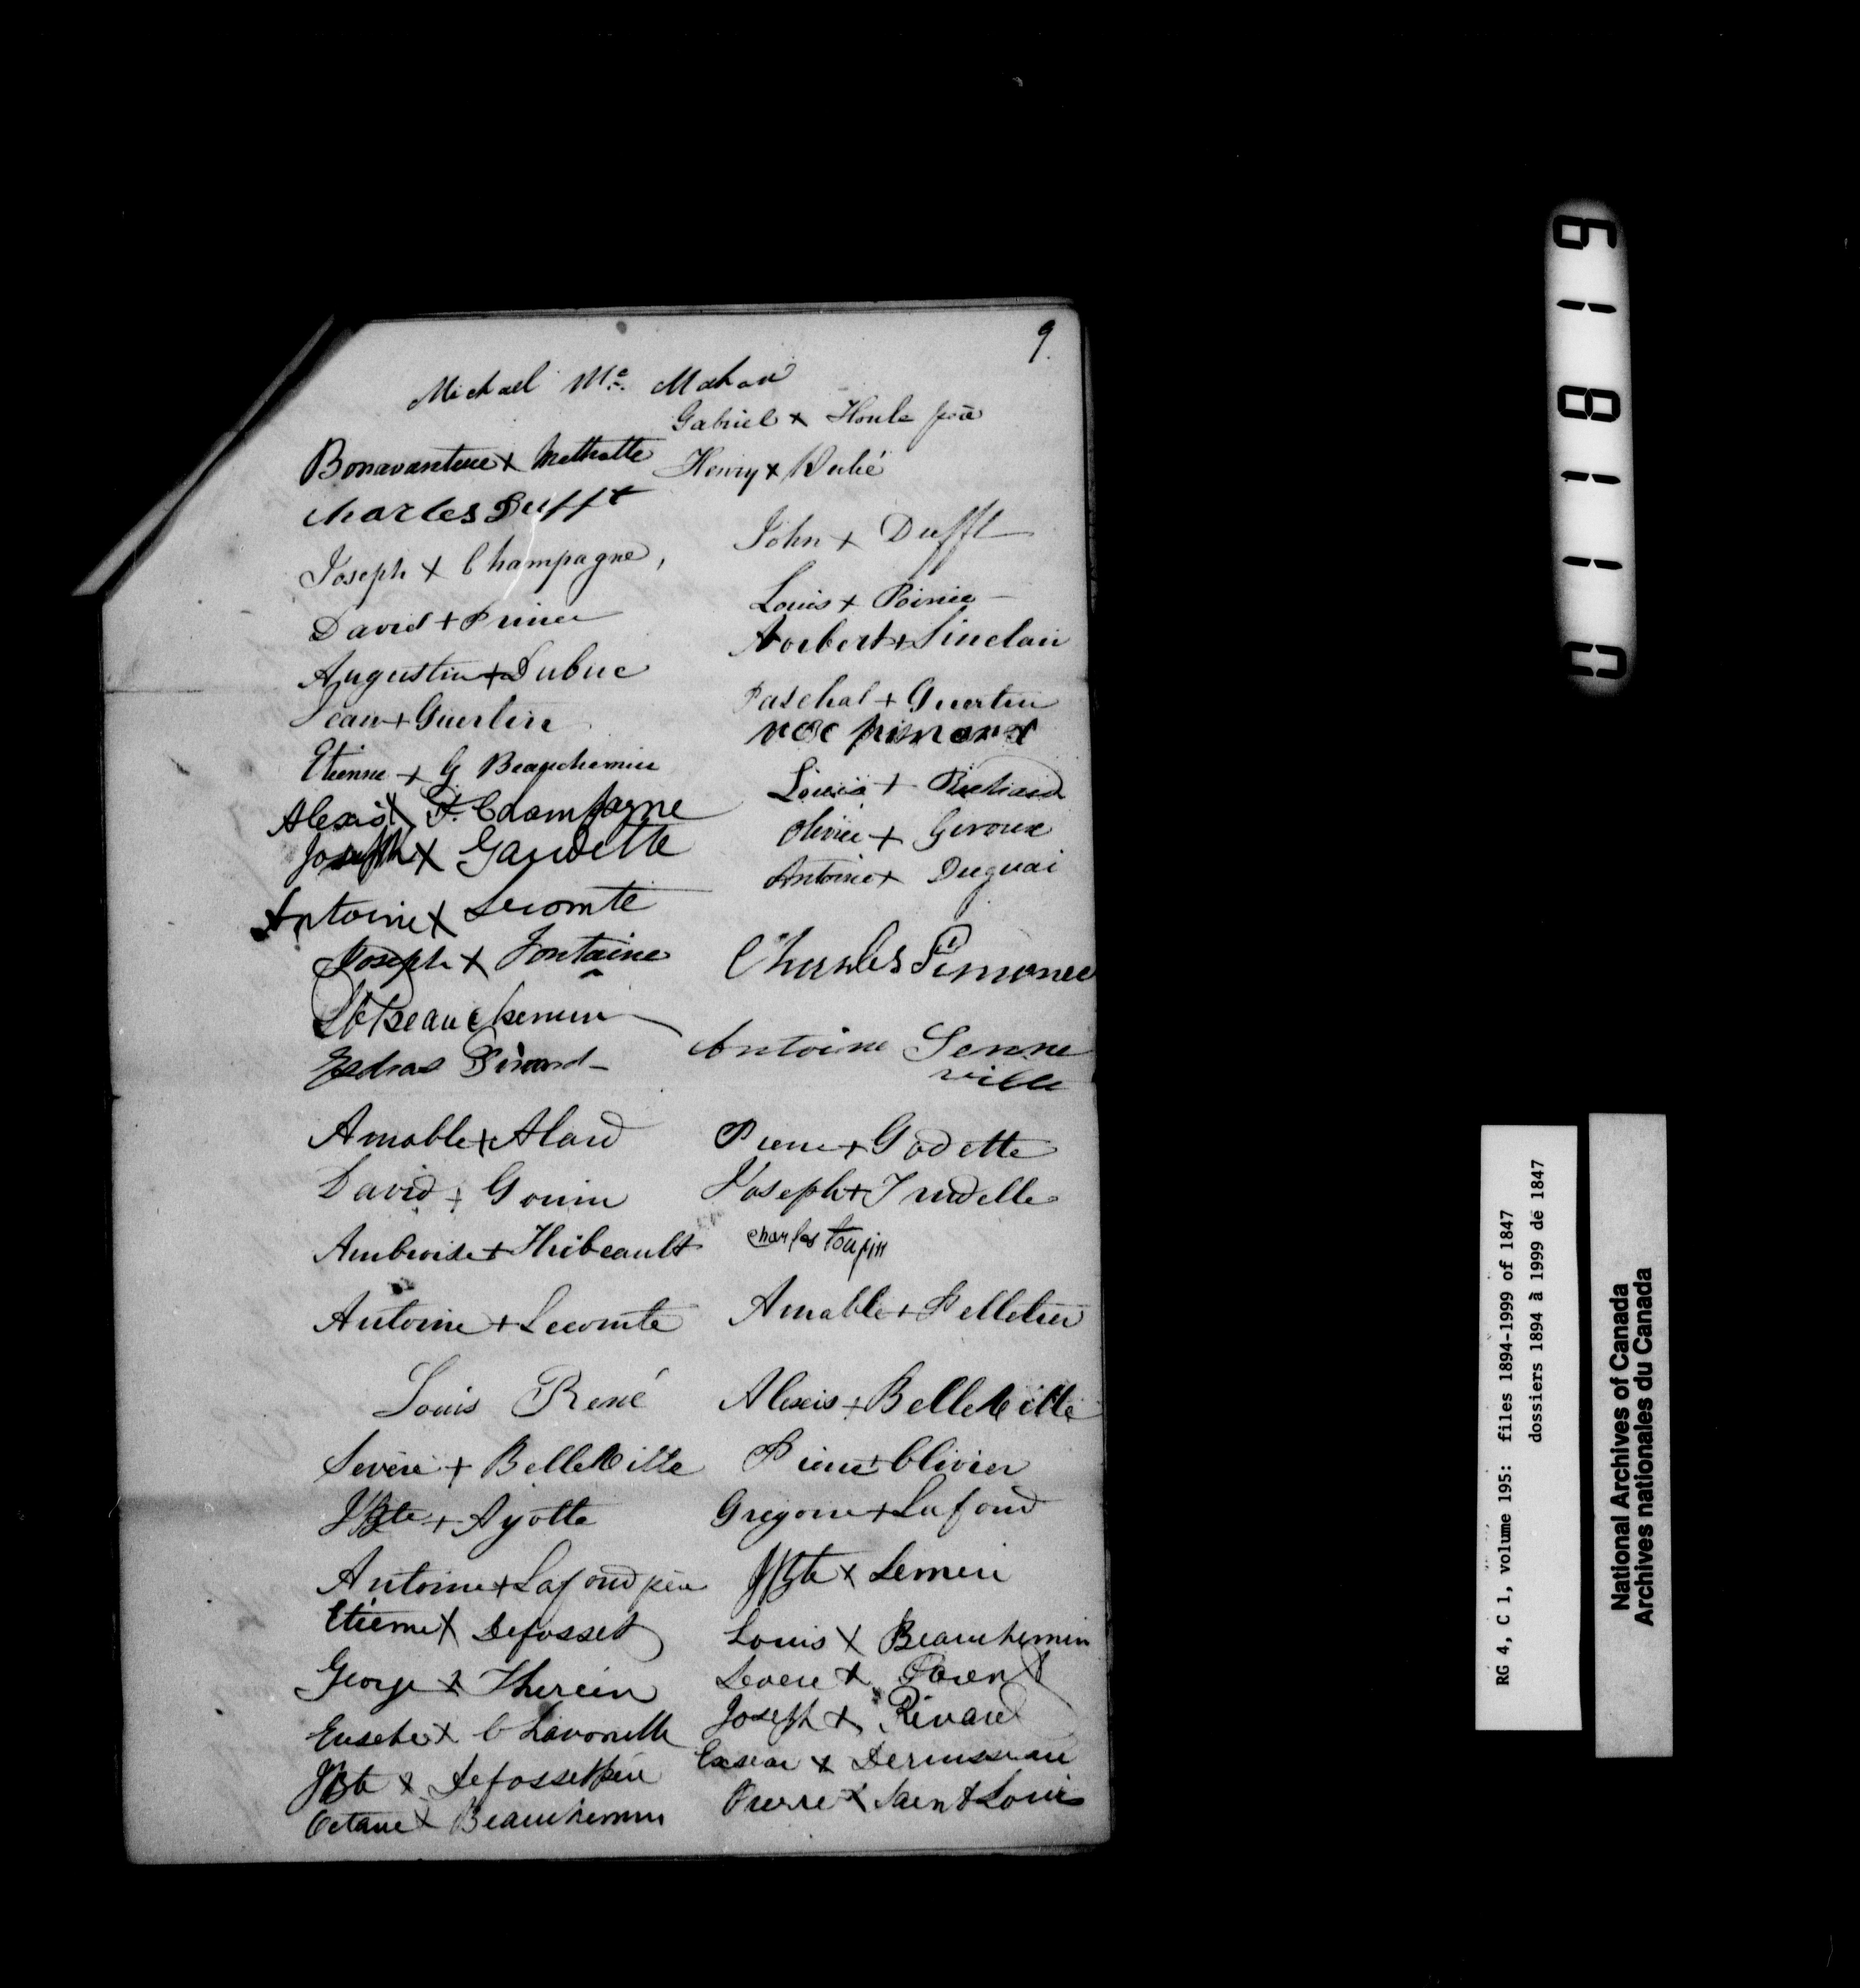 9.
Michael Mc. Mahon
Gabriel x Houle père
Bonavanture x Mathatte
Henry x Dubé
Charles Dufft
John x Dufft
Joseph x Champagne,
Louis x Poirier
David + Prince
Norbert + Sinclair
Augustin + Dubuc
Paschal + Guertin
Jean + Guertin
Etienne + G Beauchemin
Louis + Richard
Alexis x F. Champagne
Olivier + Geroux
Joseph x Gaudette
Antoine x Duguai
Antoine x Lecomte
Joseph x Fontaine
Charles Simonee
Beauchemin
Antoine Senne
ville
Esdras Simard
Amable x Alard
Pierre + Godette
David + Gouin
Joseph + Trudelle
Ambroise + Thibeault
Charles toupin
Antoine + Lecomte
Amable + Pelletier
Louis René
Alexis + BelleVille
Sévère + BelleVille
Pierre + Olivier
JBte + Ayotte
Gregoire + Lafond
Antoine + Lafond père
JBte x Lemire
Etienne x Defosset
Louis X Beauchemin
George x Therien
Severe x Parent
Eusebe x Chavonelle
Joseph x Rivard
JBte x Defosset père
x Deruisseau
Octave x Beauchemin
Pierre x Saent Louis
0118119
RG 4, C 1, volume 195: files 1894-1999 of 1847
dossiers 1894 à 1999 de 1847
National Archives of Canada
Archives nationales du Canada